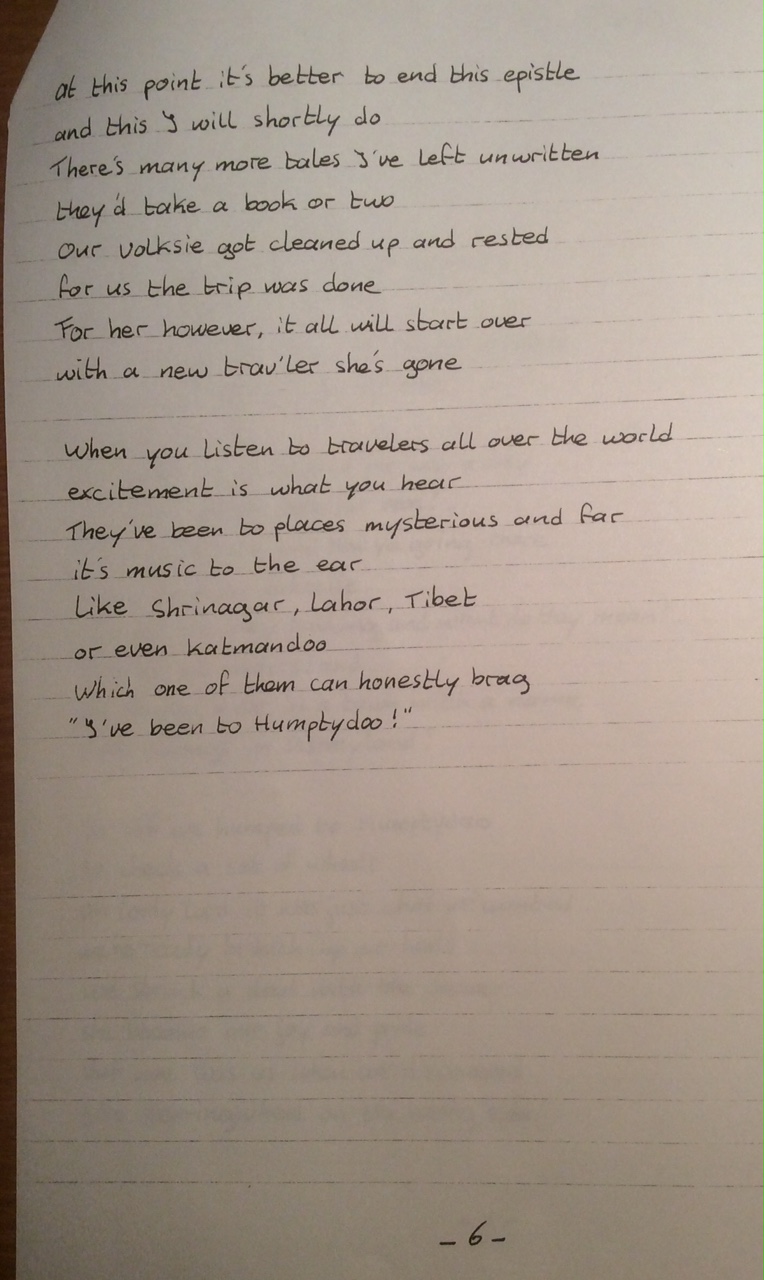 at this point it's better to end this epistle
and this I will shortly do
There's many more tales I've left unwritten
they'd take a book or two
Our volksie got cleaned up and rested
for us the trip was done
For her however, it all will start over
with a new trav'ler she's gone
When you listen to travelers all over the world
excitement is what you hear
They've been to places mysterious and far
it's music to the ear
Like Shrinagar, Lahor, Tibet
or even Katmandoo
Which one of them can honestly brag
"I've been to Humptydoo!"
- 6 -